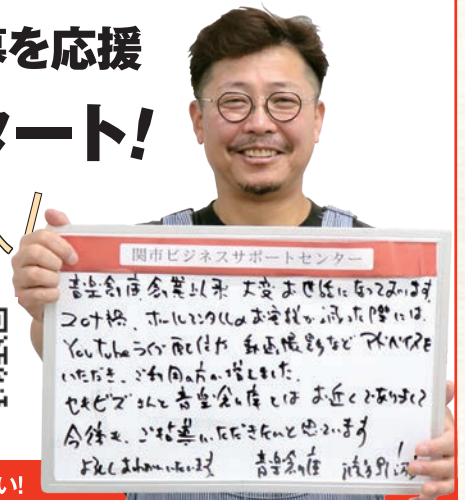 を応援
タート!
関市ビジネスサポートセンター
音楽倉庫 創業以来 大変お世話になっております。
コロナ禍、ホールレンタルのお客様が減った際には、
YouTubeライブ配信や 動画撮影など アドバイスを
いただき、ご利用の方が増えました。
セキビズさんと音楽倉庫とは お近くでありまして
今後も、ご指導いただきたいと思っています
よろしくおねがいいたします 音楽倉庫
い!